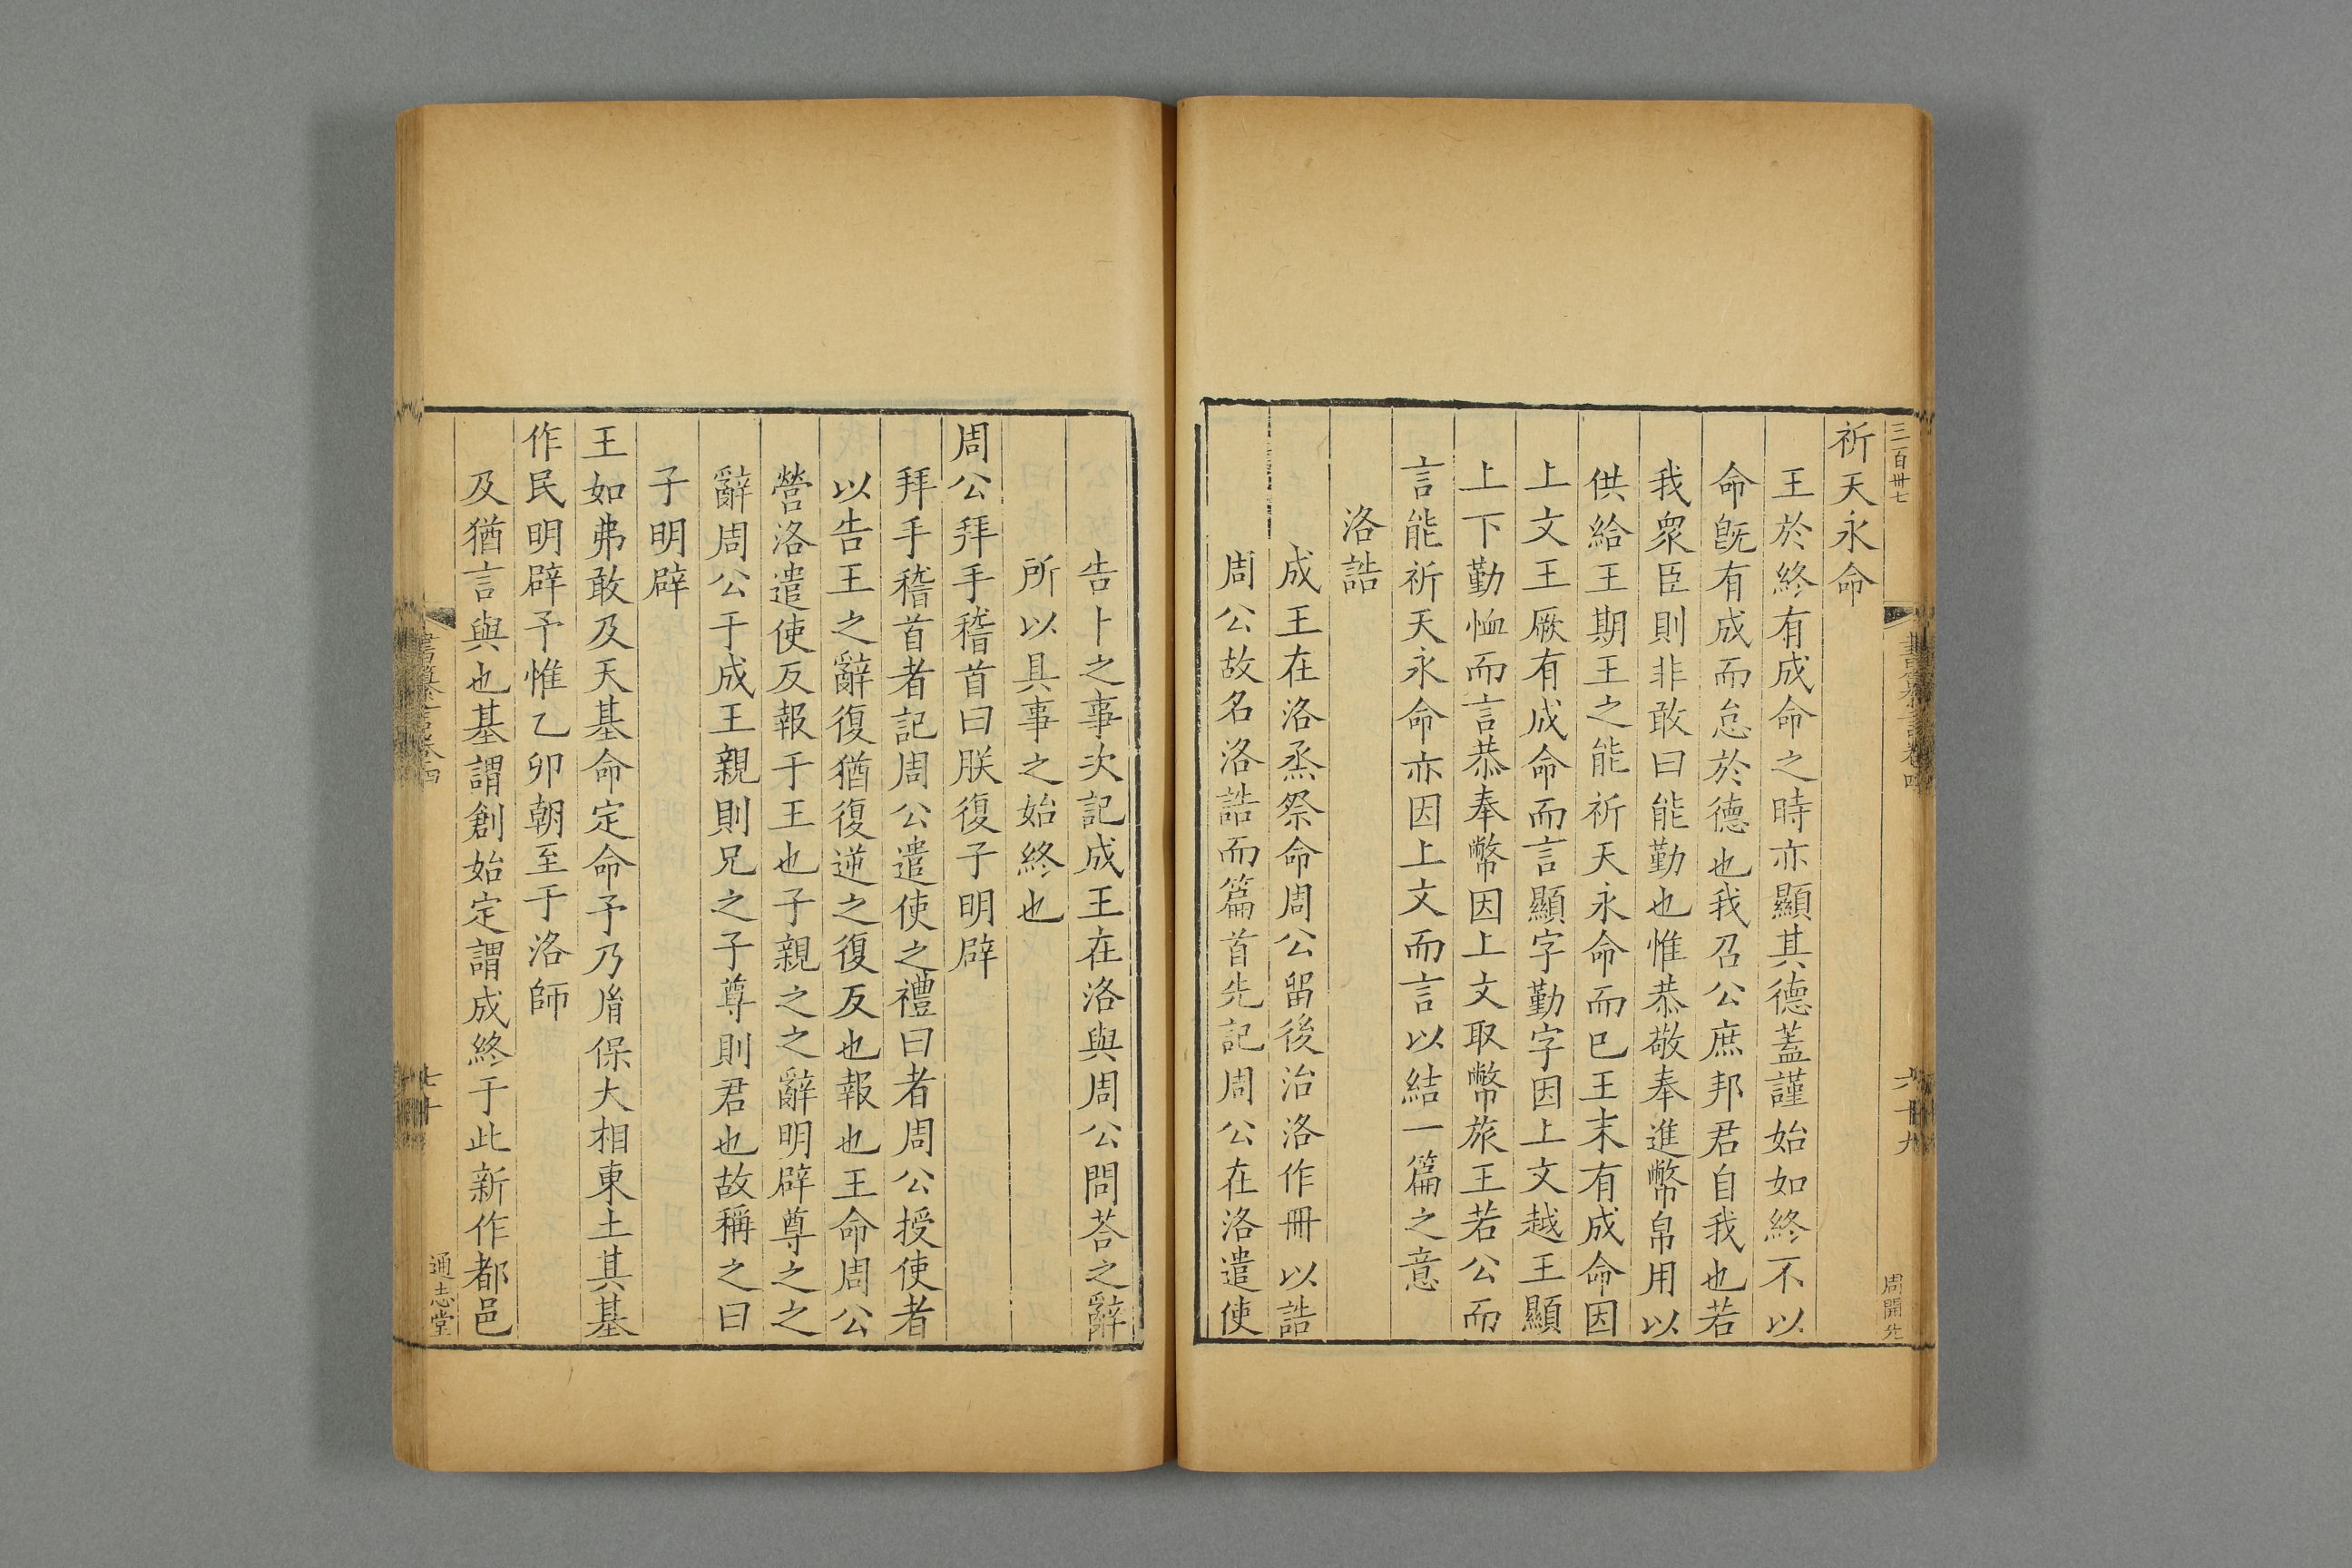 三百卅七
周開先
祈天永命
王於終有成命之時亦顯其德蓋謹始如終不以
命旣有成而怠於德也我召公庶邦君自我也若
我衆臣則非敢曰能勤也惟恭敬奉進幣帛用以
供給王期王之能祈天永命而已王末有成命因
上文王厥有成命而言顯字勤字因上文越王顯
上下勤恤而言恭奉幣因上文取幣旅王若公而
言能祈天永命亦因上文而言以結一篇之意
洛誥
成王在洛烝祭命周公留後治洛作冊以誥
周公故名洛誥而篇首先記周公在洛遣使
告卜之事次記成王在洛與周公問荅之辭
所以具事之始終也
周公拜手稽首曰朕復子明辟
拜手稽首者記周公遣使之禮曰者周公授使者
以告王之辭復猶復逆之復反也報也王命周公
營洛遣使反報于王也子親之之辭明辟尊之之
辭周公于成王親則兄之子尊則君也故稱之曰
子明辟
王如弗敢及天基命定命予乃胤保大相東土其基
作民明辟予惟乙卯朝至于洛師
及猶言與也基謂創始定謂成終于此新作都邑
通志堂